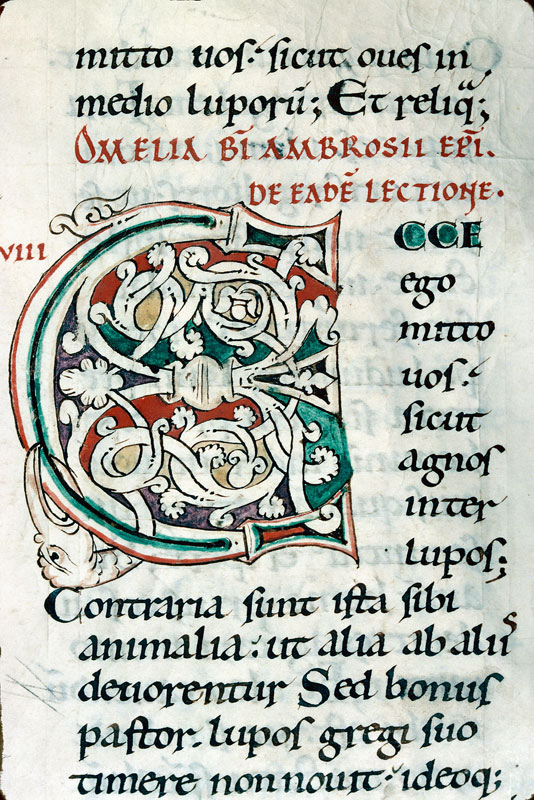 mitto uos. sicut oues in
medio luporū; Et reliq̄;
OMELIA BĪ AMBROSII EPĪ.
DE EADĒ LECTIONE.
VIII
ECCE
ego
mitto
uos.
sicut
agnos
inter
lupos;
Contraria sunt ista sibi
animalia: ut alia ab aliis
deuorentur Sed bonus
pastor. lupos gregi suo
timere non nouit. ideoq;